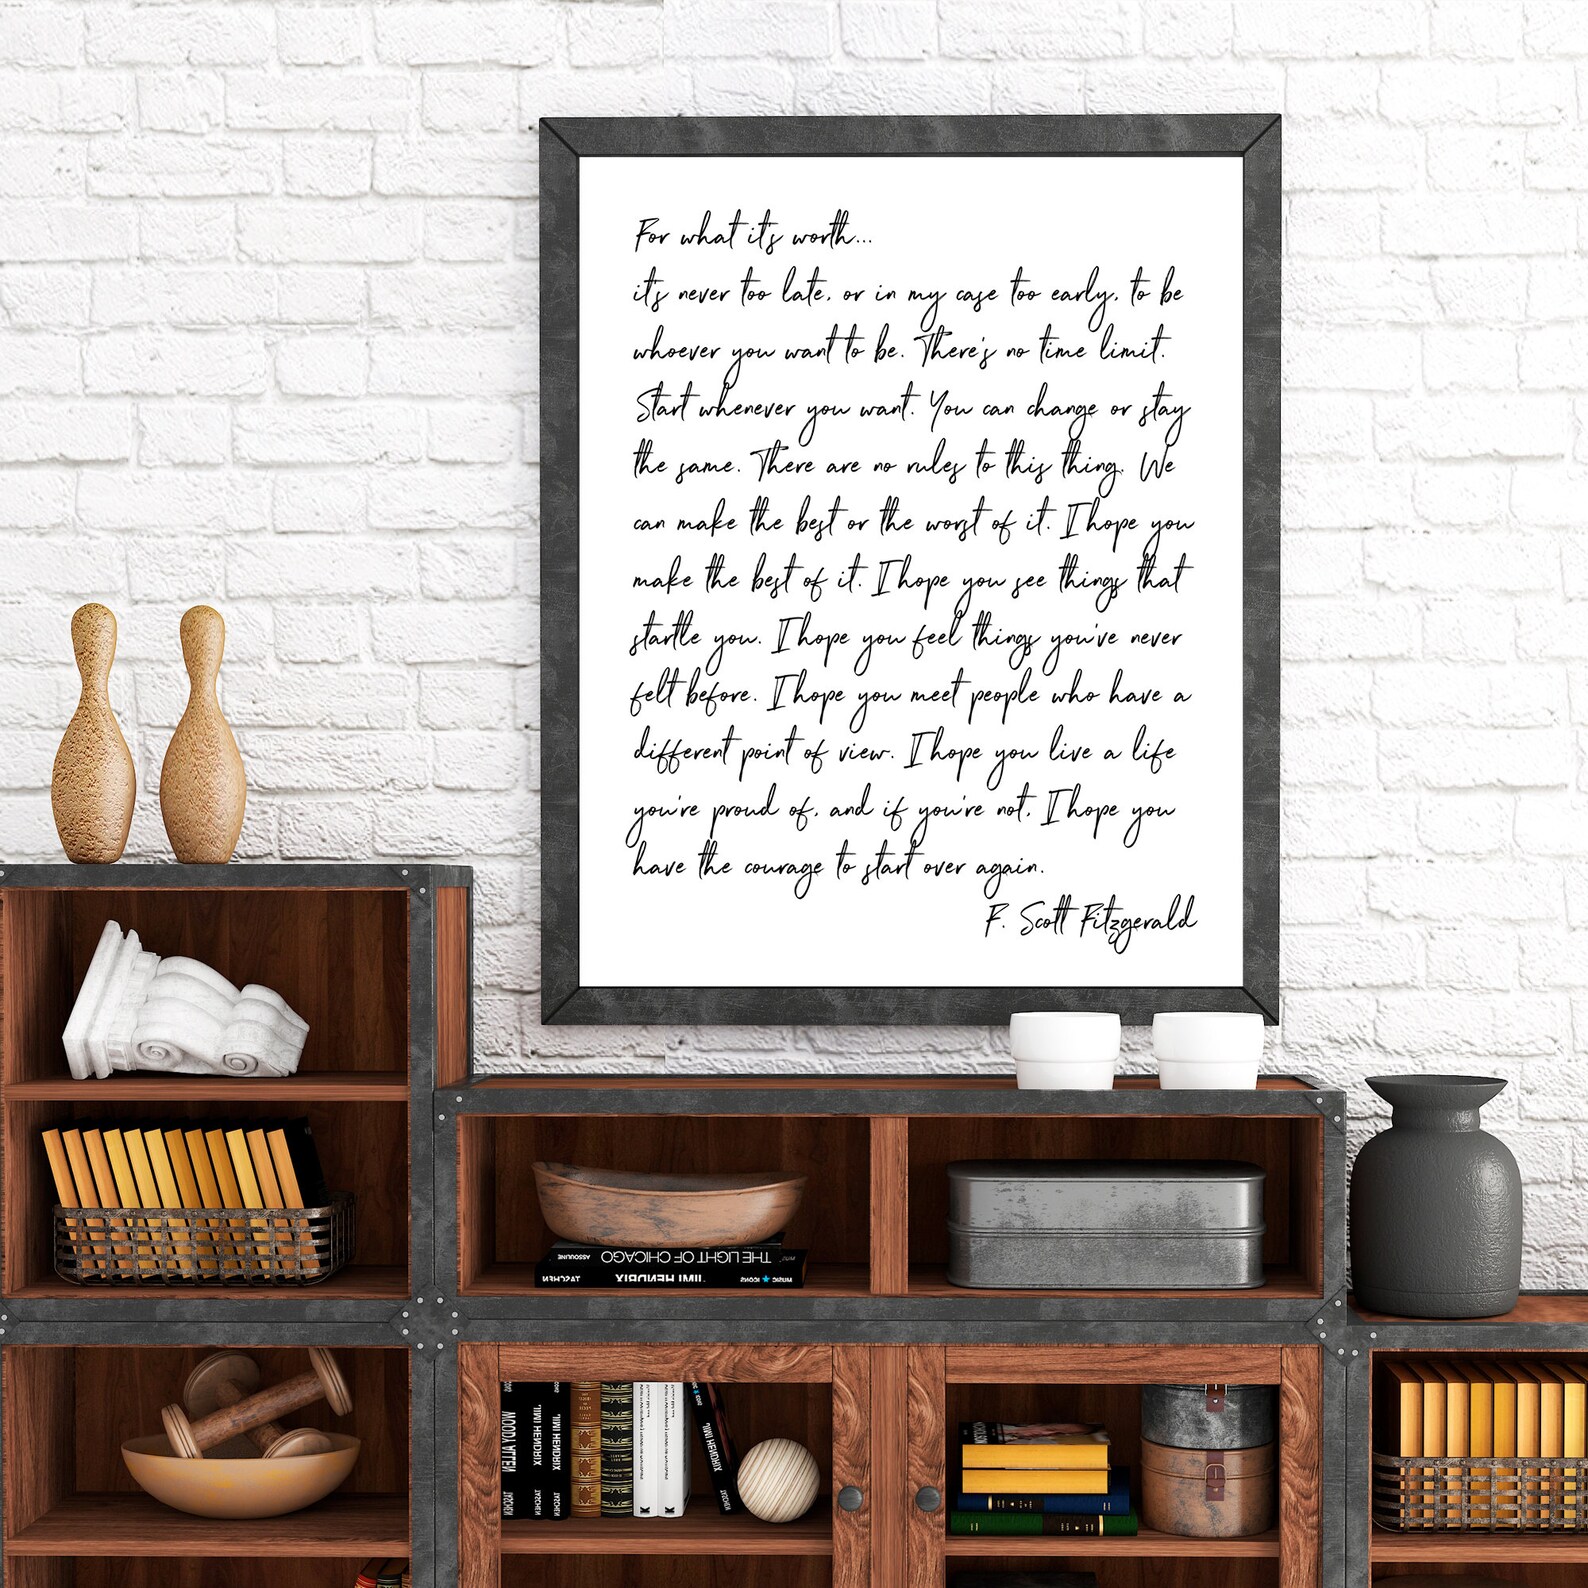 For what it's worth...
it's never too late, or in my case too early, to be
whoever you want to be. There's no time limit.
Start whenever you want. You can change or stay
the same. There are no rules to this thing. We
can make the best or the worst of it. I hope you
make the best of it. I hope you see things that
startle you. I hope you feel things you've never
felt before. I hope you meet people who have a
different point of view. I hope you live a life
you're proud of, and if you're not, I hope you
have the courage to start over again.
F. Scott Fitzgerald
ASSOULINE THE LIGHT OF CHICAGO
TASCHEN JIMI HENDRIX MUSIC ★ ICONS
WOODY ALLEN TASCHEN
JIMI HENDRIX TASCHEN
JIMI HENDRIX TASCHEN
JIMI HENDRIX TASCHEN